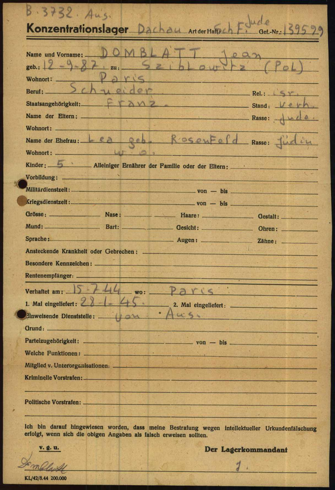 B-3732. Aus.
Jude
Konzentrationslager Dachau Art der Haft: Sch.F. Gef.-Nr.: 139529
Name und Vorname: DOMBLATT Jean
geb.: 12-9-87. zu: Szidlowitz (Pol)
Wohnort: Paris
Beruf: Schneider Rel.: isr.
Staatsangehörigkeit: Franz. Stand: verh.
Name der Eltern: Rasse: Jude
Wohnort:
Name der Ehefrau: Lea geb. Rosenfeld Rasse: Jüdin
Wohnort: w. o.
Kinder: 5 Alleiniger Ernährer der Familie oder der Eltern:
Vorbildung:
Militärdienstzeit: von — bis
Kriegsdienstzeit: von — bis
Grösse: Nase: Haare: Gestalt:
Mund: Bart: Gesicht: Ohren:
Sprache: Augen: Zähne:
Ansteckende Krankheit oder Gebrechen:
Besondere Kennzeichen:
Rentenempfänger:
Verhaftet am: 15-7-44 wo: Paris
1. Mal eingeliefert: 28-1-45. 2. Mal eingeliefert:
Einweisende Dienststelle: von Aus.
Grund:
Parteizugehörigkeit: von — bis
Welche Funktionen:
Mitglied v. Unterorganisationen:
Kriminelle Vorstrafen:
Politische Vorstrafen:
Ich bin darauf hingewiesen worden, dass meine Bestrafung wegen intellektueller Urkundenfälschung
erfolgt, wenn sich die obigen Angaben als falsch erweisen sollten.
v. g. u. Der Lagerkommandant
KL/42/9.44 200.000